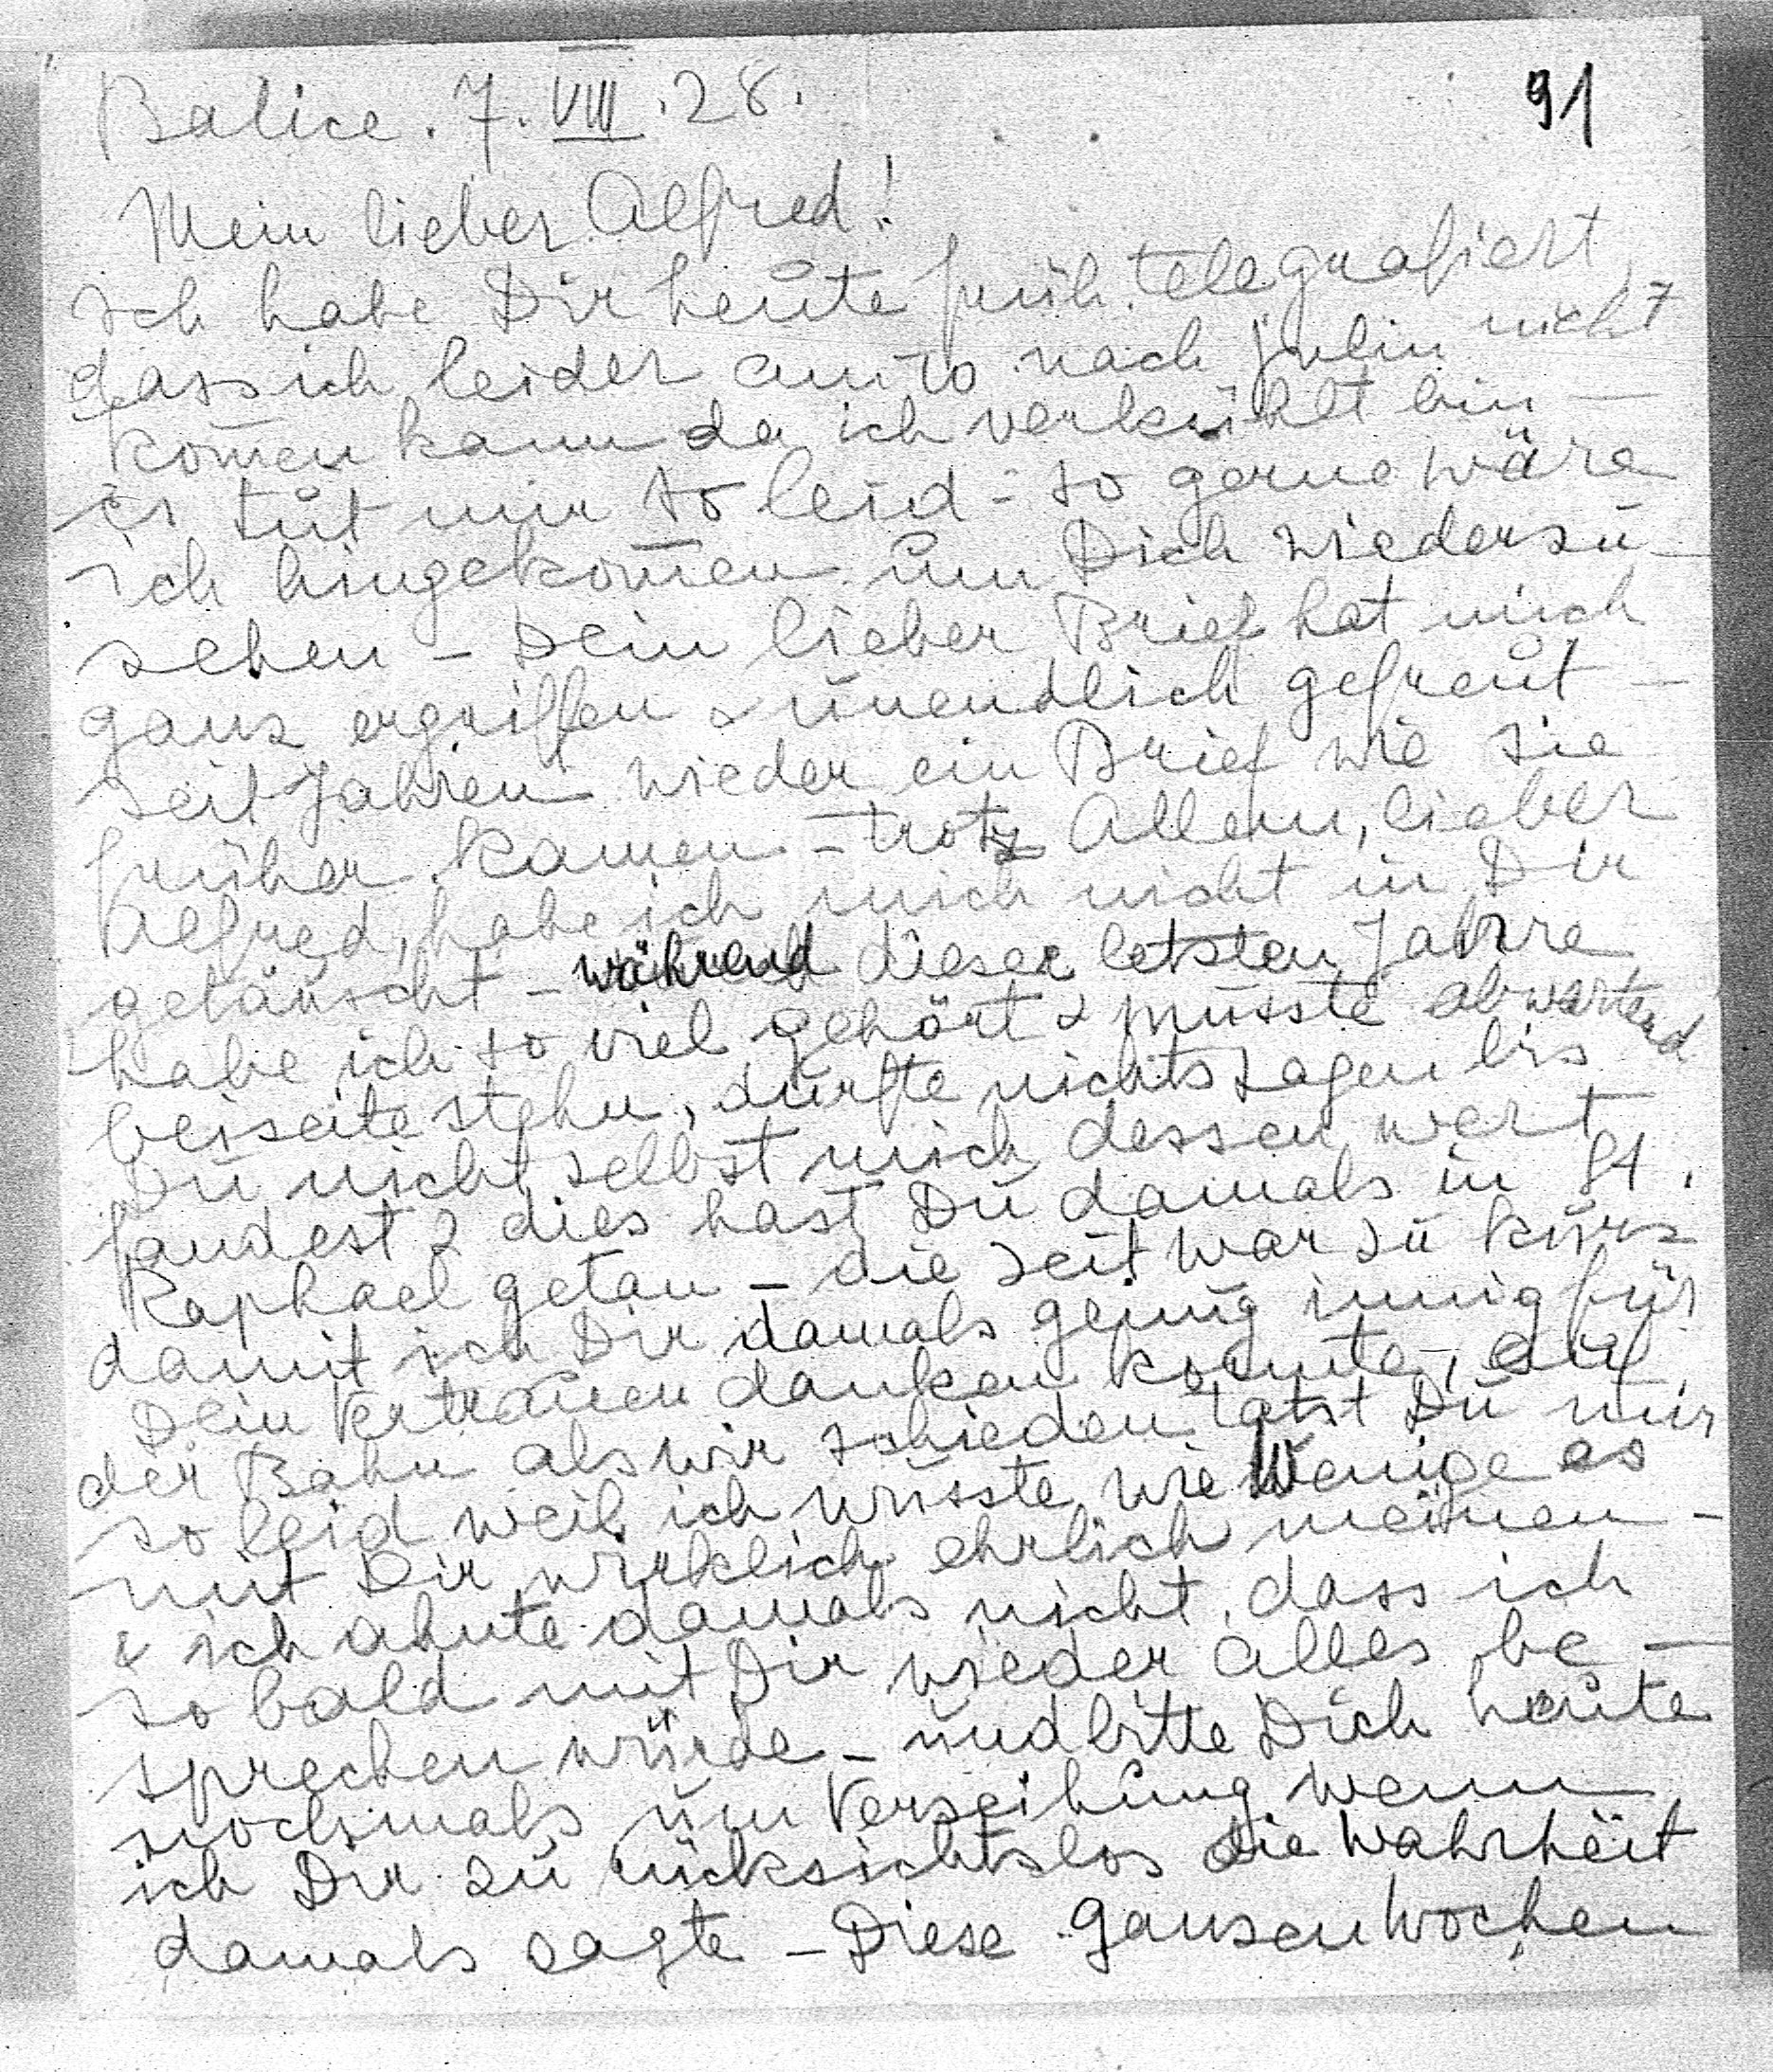 Balice. 7. VIII. 28.
91
Mein lieber Alfred!
ich habe Dir heute früh telegrafiert,
dass ich leider am 10 nach Julin nicht
kom̄en kann da ich verkühlt bin —
es tut mir so leid - so gerne wäre
ich hingekom̄en um Dich wiederzu-
sehen - Dein lieber Brief hat mich
ganz ergriffen & unendlich gefreut -
seit Jahren wieder ein Brief wie sie
früher kamen - trotz Allem, lieber
Alfred, habe ich mich nicht in Dir
getäuscht - während dieser letzten Jahre
habe ich so viel gehört & musste abwartend
beiseite stehn, durfte nichts sagen bis
Du nicht selbst mich dessen wert
fandest & dies hast Du damals in St.
Raphael getan - die Zeit war zu kurz
damit ich Dir damals genug innig für
Dein Vertrauen danken konnte, auf
der Bahn als wir schieden tatst Du mir
so leid weil ich wusste wie Wenige es
mit Dir wirklich ehrlich meinen -
& ich ahnte damals nicht, dass ich
so bald mit Dir wieder alles be-
sprechen würde - und bitte Dich heute
nochmals um Verzeihung wenn
ich Dir zu rücksichtslos die Wahrheit
damals sagte - Diese ganzen Wochen